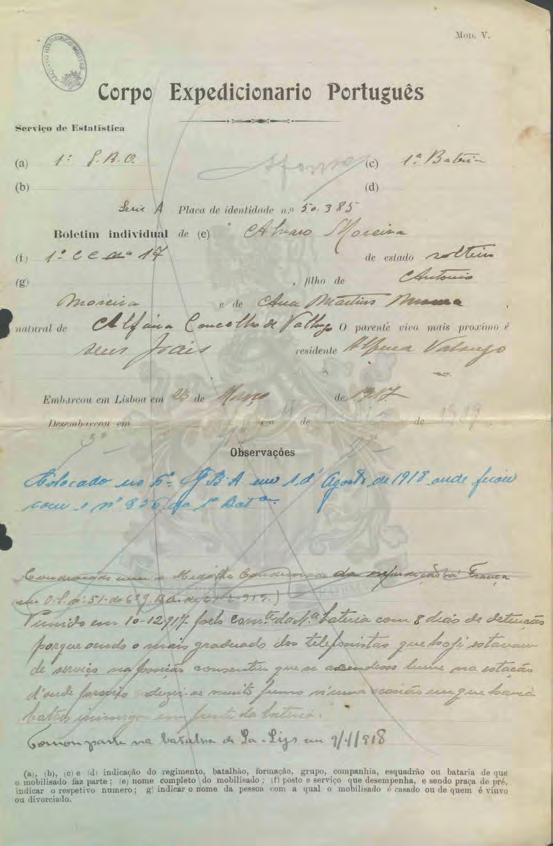 Mod. V.
Corpo Expedicionario Português
Serviço de Estatística
(a) 1º G.B.A. (c) 1ª Bateria
(b) (d)
Serie A Placa de identidade n.º 50.385
Boletim individual de (e) Alvaro Moreira
(f) 1º C C nº 17 de estado solteiro
(g) filho de Antonio
Moreira e de Ana Martins
natural de Alfena Concelho de Vallongo O parente vivo mais proximo é
seus Pais residente Alfena Valongo
Embarcou em Lisboa em 23 de Março de 1917
Desembarcou em de de 1919
Observações
Colocado no 6º G B A em 1 d' Agosto de 1918 onde ficou
com o nº 826 da 1ª Batª
Condecorado com a Medalha Comemorativa da expedição a França
Punido em 10-12-917 pelo Comte da 4ª bateria com 8 dias de detenção
porque sendo o mais graduado dos telefonistas que hoje estavam
de serviço na posição consentiu que se acendesse lume na estação
d'onde muito fumo n'uma ocasião em que havia
inimigo em frente da bateria.
Tomou parte na batalha de La-Lys em 9/4/918
(a), (b), (c) e (d) indicação do regimento, batalhão, formação, grupo, companhia, esquadrão ou bataria de que
o mobilisado faz parte; (e) nome completo do mobilisado; (f) posto e serviço que desempenha, e sendo praça de pré,
indicar o respetivo numero; g) indicar o nome da pessoa com a qual o mobilisado é casado ou de quem é viuvo
ou divorciado.